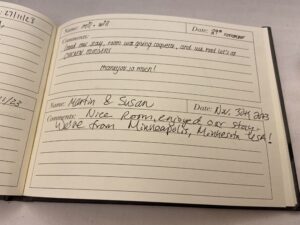 27/11/23
Name:
Date: 29th november
Comments:
Loved our stay, room was going
and we had
CHICKEN NUGGETS!
so much!
11/23
Name: Martin & Susan
Date: Nov. 30th 2023
Comments: Nice Room, enjoyed our stay.
We're from Minneapolis, Minnesota USA!